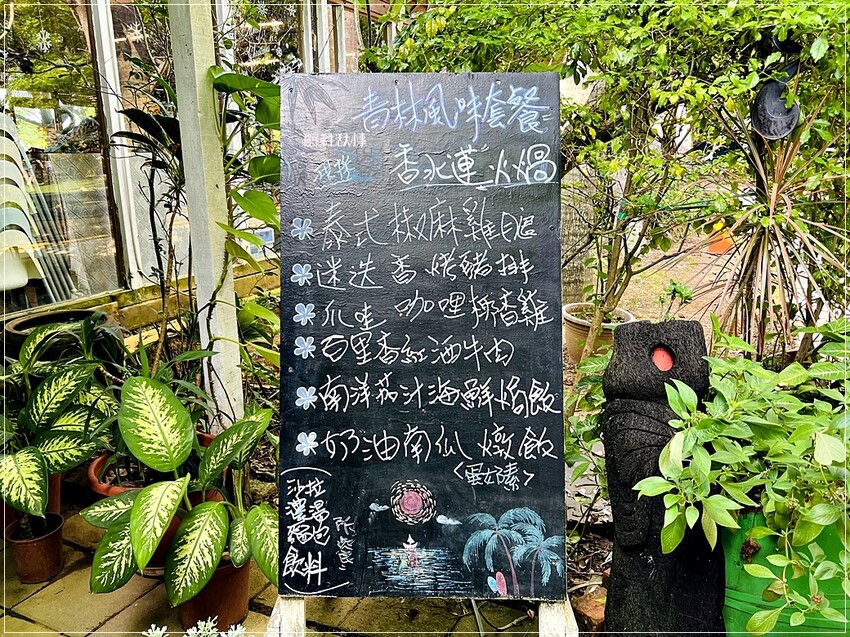 青林風味套餐
香水蓮火鍋
泰式椒麻雞腿
迷迭香烤豬排
瓜哇咖哩椰香雞
百里香紅酒牛肉
南洋茄汁海鮮焗飯
奶油南瓜燉飯
<蛋奶素>
沙拉
濃湯
飲料